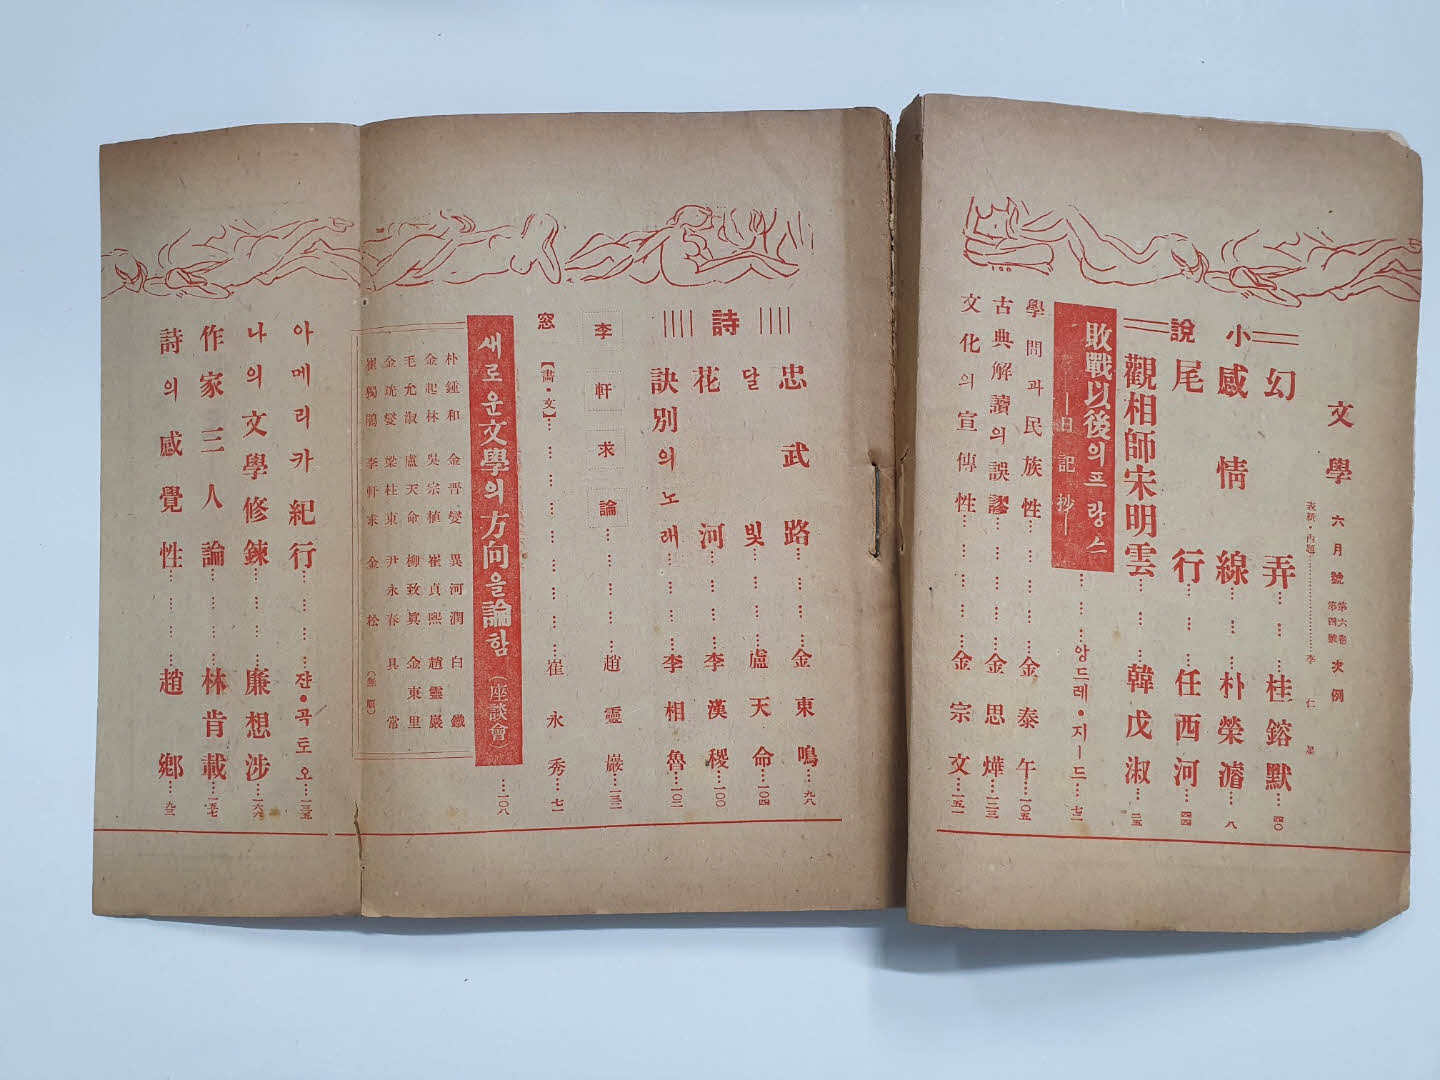 文學 六月號 第六卷 第四號 次例
表紙・內題……李仁星
小說
幻弄……桂鎔默……四〇
感情線……朴榮濬……八
尾行……任西河……四四
觀相師宋明雲……韓戊淑……二五
敗戰以後의프랑스
―日記抄―
……앙드레・지ー드……七二
學問과民族性……金泰午……一〇五
古典解讀의誤謬……金思燁……一二三
文化의宣傳性……金宗文……一五一
詩
忠武路……金東鳴……九八
달빛……盧天命……一〇四
花河……李漢稷……一〇〇
訣別의노래……李相魯……一〇二
李軒求論……趙靈巖……一三二
窓【畵・文】……崔永秀……七一
새로운文學의方向을論함(座談會)……一〇八
朴鍾和 金晋燮 異河潤 白鐵
金起林 吳宗植 崔貞熙 趙靈巖
毛允淑 盧天命 柳致眞 金東里
金珖燮 梁柱東 尹永春 具常
崔獨鵑 李軒求 金松 (無順)
아메리카紀行……쟌・콕토오……一三五
나의文學修鍊……廉想涉……一六六
作家三人論……林肯載……一五七
詩의感覺性……趙鄕……九三